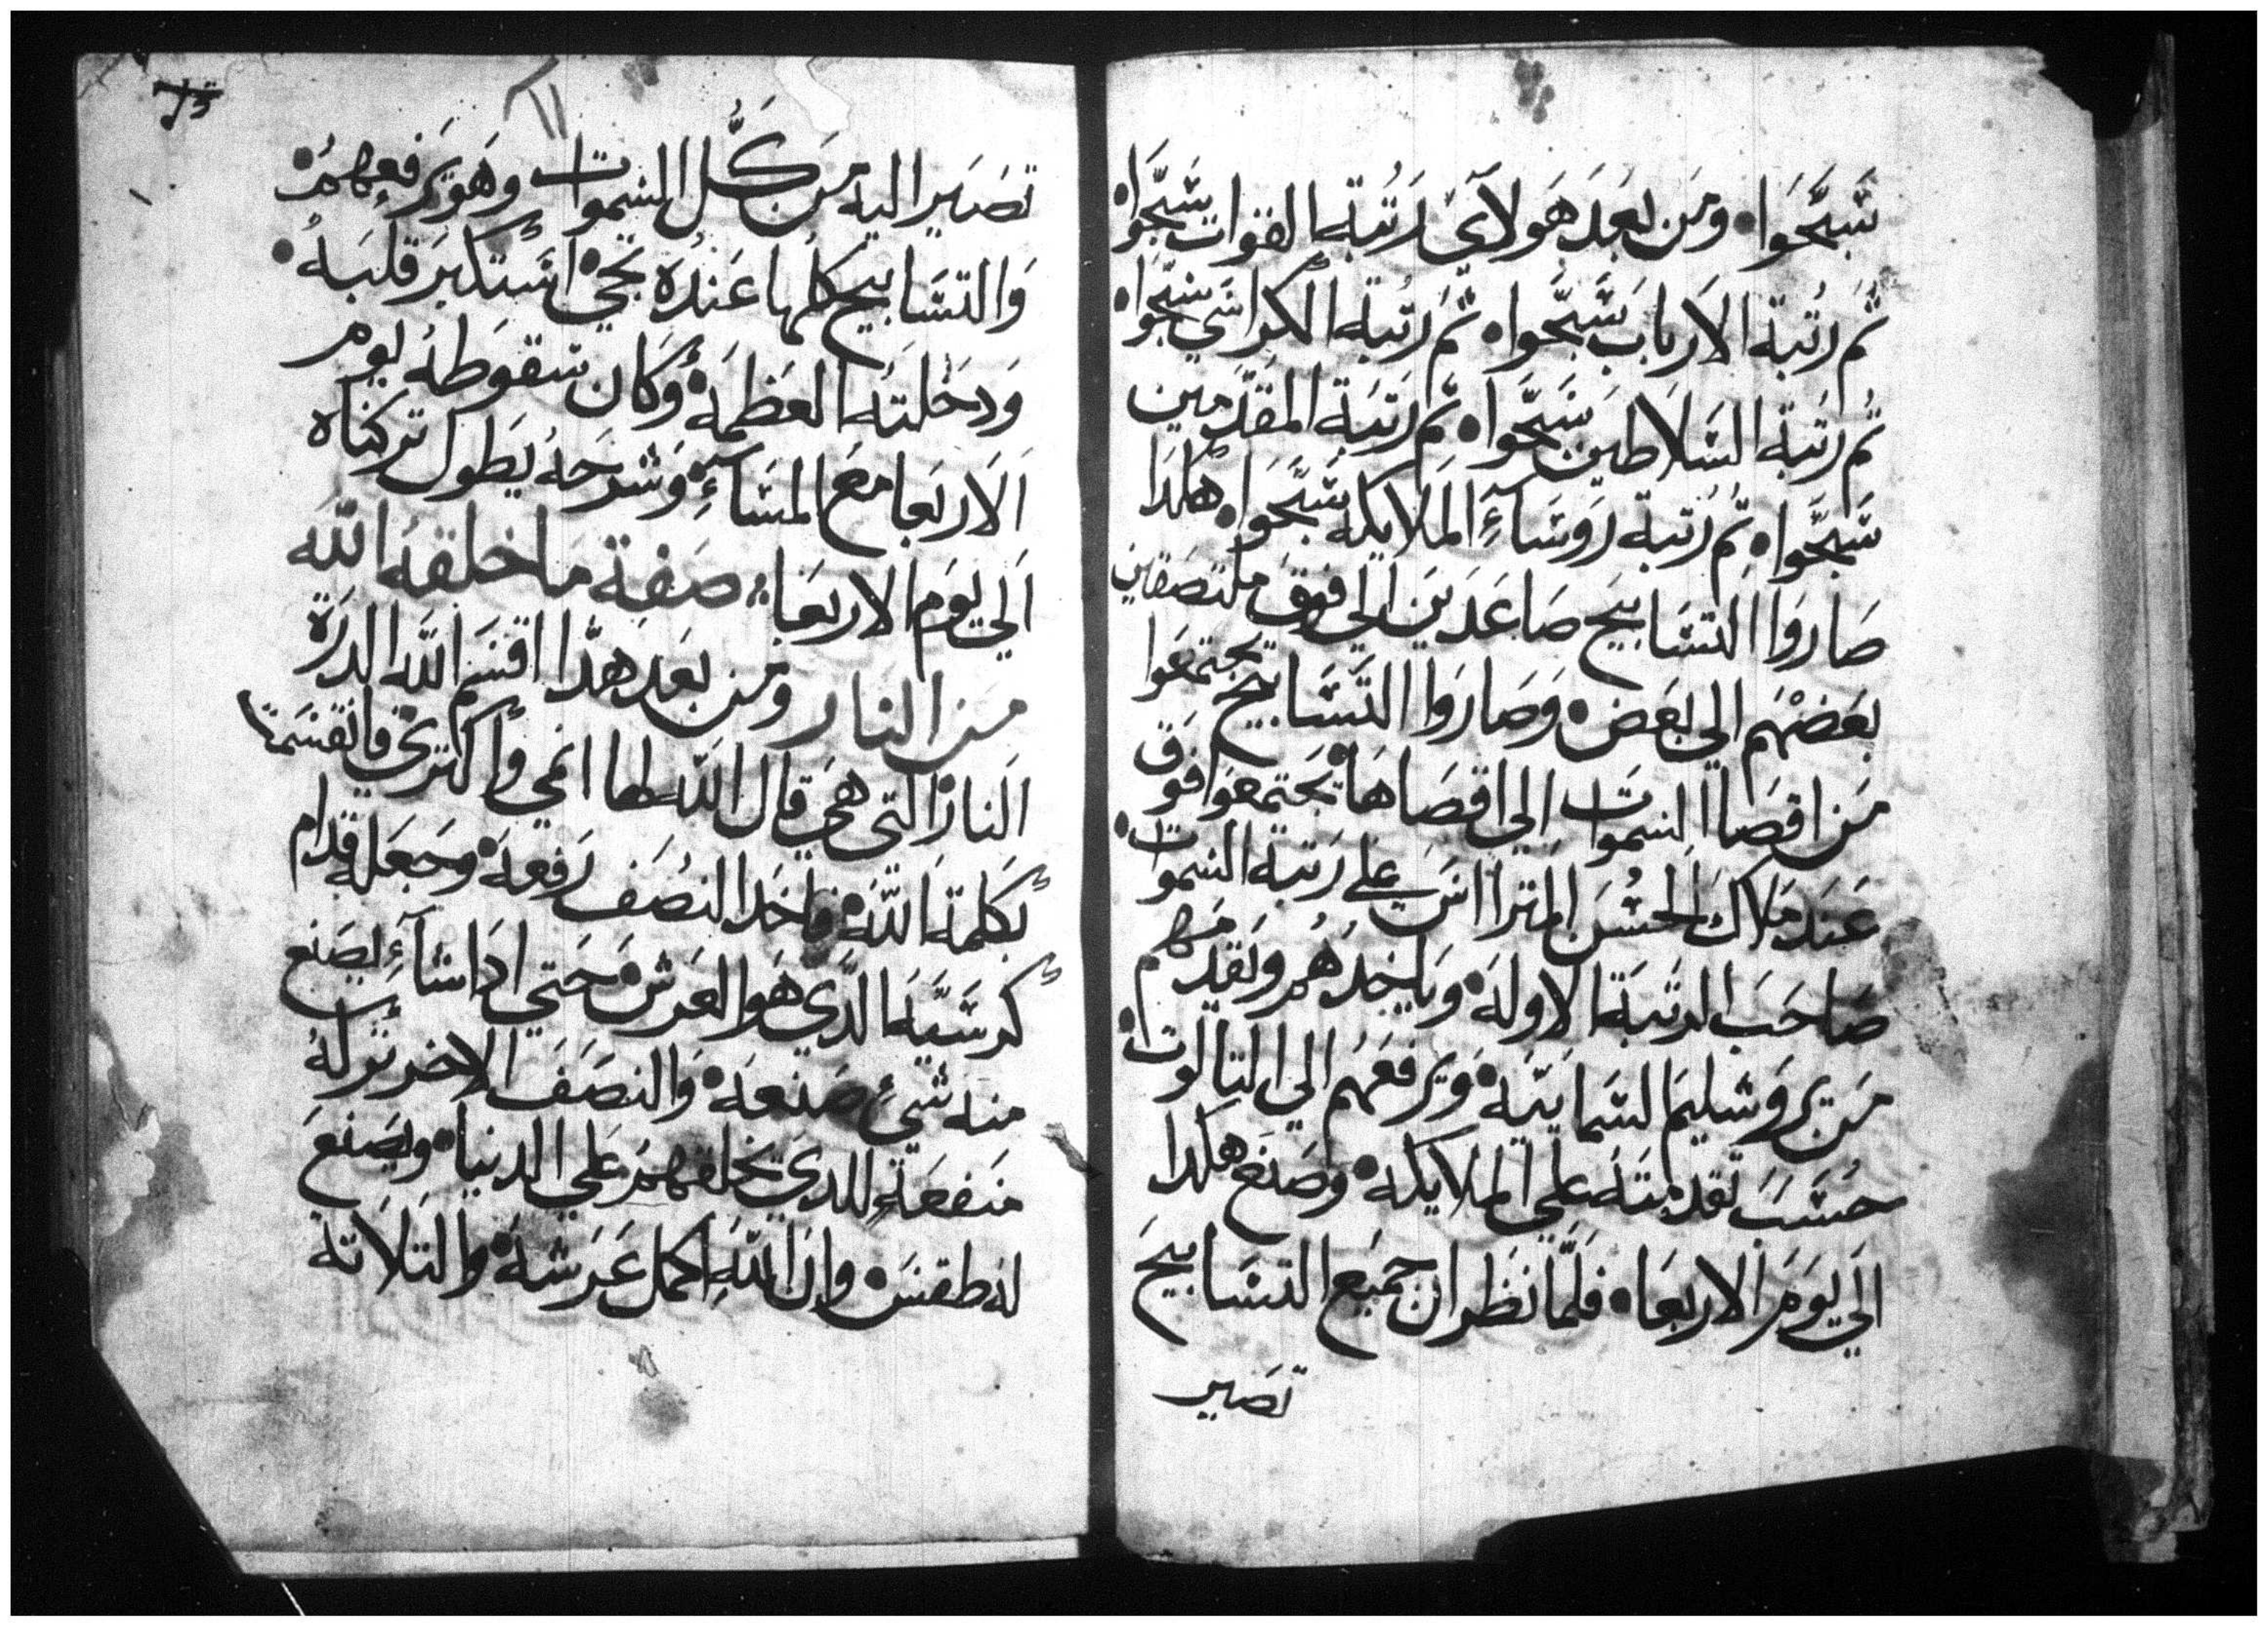 سَبَّحَوا۰ ومَن بعَدَ هَولآيَ رَتُبة القوات سَبَّحَوا۰
ثُم رُتبة الاَرباب سَبَّحوا۰ ثُم رُتبة الكراسَي سَبّحوا۰
ثُم رَتبَة السَلاَطين سَبَّحَوا۰ ثم رَتَبَة المقدَّمين
سَبَّحَوا۰ ثِم رُتبة رَوَسَآءِ المَلايكة سَبَّحَوا۰ هكَدَا
صَاروَا التسَابيح صَاعَدَين الي فوقَ ملتصَقاين
بعَضهَم الي بعَض۰ وَصَارَوا التَّسَابيح يَجتمعَوا
مَن اقصَا السموات الِي اقصَاهَا۰ يَجتَمعَوا فوَق
عَندَ ملاك الحسُن المتراسَ علي رَتبة السَموات۰
صَاحَبَ الرتبَة الاوله۰ وَياخِدَهُم ويَقدمَهم
مَن يرَوَشليمَ السَمايَيَة۰ وَيرفَعَهُم الي التالوت۰
حسَبَ تقدمتَة علي الملايكة۰ وصَنع هكدا
الَي يوَمَ الاربعَا۰ فلَمّا نَظر ان جميَع التسَابيحَ
تصَير
تصَير اليه مَن كُل السَموات وهَو يَرفعهمُ۰
وَالتسَابيح كلها عَندَه تجي۰ اسَتكبَر قلبَهُ۰
وَدخَلتَه العَظمَة۰ وَكان سَقوَطهُ يوم
اَلاربَعا معَ المسَآءِ۰ وَشرحَهُ يَطول تركناه
اَلي يوَم الاربعَا۰ صَفِة مَا خلقهُ اللّه
مَن النار ومَن بعَد هدَا اقسَم اللّه الدرَة
النار التي هَي قال اللّه لها انمي واكتري۰ فانقسَمت
بكلمَة اللّه۰ فاخَد النصُف رَفعهَ۰ وجَعَله قدام
كرسَيَّه الدَي هَو العَرش۰ حَتي ادَا شآءِ يصَنع
منه شيءِ صَنعَه۰ وَالنصَفَ الاخر نزله
منفعَة للدَي يخلقهمَ علي الدنيا۰ ويصَنعَ
له طقسَ۰ وان اللّه اكمل عَرشهُ۰ والتلاتة